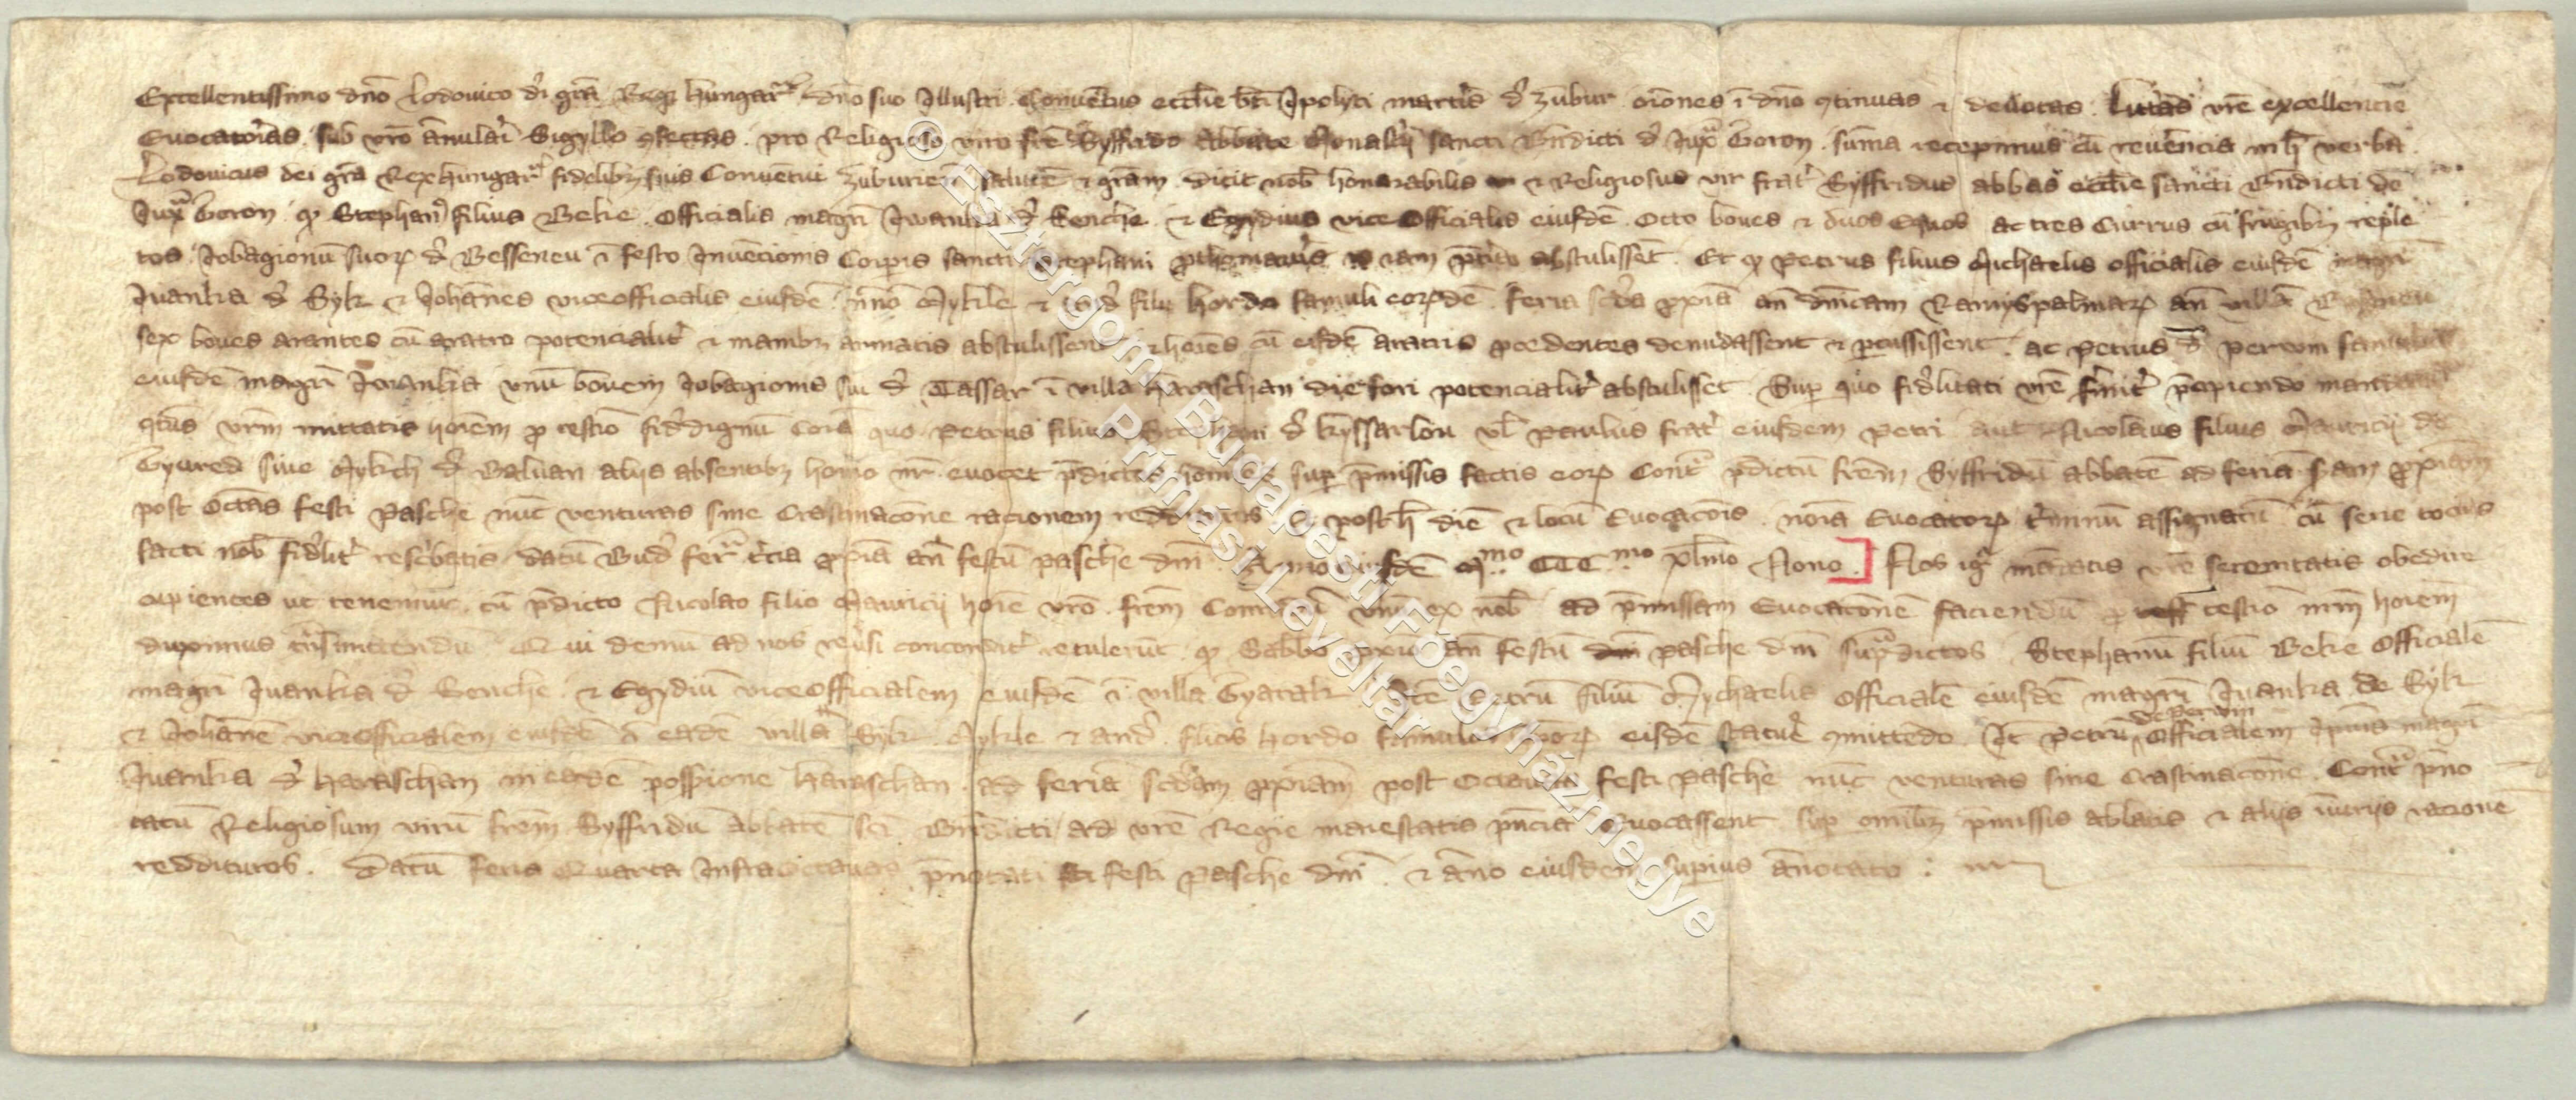 Excellentissimo dno Lodouico di gra Rege hungar dno suo Jllustri Conuentus ecclie bti Jpoliti martiris d Zubur oiones i dno 9tinuas et deuotas. Litteras vre excellencie
Euocatorias sub vro anulari Sigyllo 9fectas pro Religioso viro fre Syffrido Abbate Monastij sancti Bndicti d Juxa Goron suma recepimus cu reuerencia in h verba
Lodouicus dei gra Rex hungar fidelibz suis Conuentui Zuburien salute et gram dicit nob honorabilis et Religiosus vir frat Syffridus abbas ecclie sancti Bndicti de
Juxa Goron q Stephan filius Beke Officialis magri Jwanka d Benche et Egydius vice Officialis eiusde Octo boues et duos Equos ac tres Currus cu frugibz reple
tos Jobagionu suor d Besseneu i festo Jnuencionis Corpis sancti Stephani pthomartiris iam abstulissent Et q Petrus filius Michaelis officialis eiusde magri
Juanka d Syk et Johanes viceofficialis eiusde Mykle et filij hordo famuli eorde feria scda pxia an dnicam Ramyspalmar an villa
sex boues arantes cu aratro potencialit et manibz armatis abstulissent et hoies cu eisde aratris pcedentes denudassent et pcussissent ac Petrus d Perwn famulus
eiusde magri Jwanka vnu bouem Jobagionis sui d Tassar i villa haraschan die fori potencialit abstulisset Sup quo fidlitati vre firmit pcipiendo mandamus
qtus vrm mittatis hoiem p testio fiddignu Cora quo Petrus filius Stephani d kyssarlou vl Paulus frat eiusdem Petri aut Nicolaus filius Mauricij de
Gyured siue Mykch d Baluan alijs absentibz homo nr euocet pdictos homines sup pmissis factis eor Contra pdictu frem Syffridu abbate ad feria scdam pxiam
post Octas festi Pasche nuc venturas sine Crastinacone racionem reddituros Et post h die et locu Euocacois noia Euocator tminu assignatu cu serie tocius
facti nob fidlit rescbatis datu Bud fer tcia pxia an festu pasche dni Anno eiusde Mmo CCCmo xlmo Nono ] Nos igr mandatis vre serenitatis obedire
cupientes vt tenemur cu pdicto Nicolao filio Mauricij hoie vro frem Conradu vnu ex nob ad pmissam Euocacone faciendu p testio nrm hoiem
duximus tnsmittendu Qui demu ad nos reusi concordit retulerut q Sabbo pxio an festu pasche dni supadictos Stephanu filiu Beke Officiale
magri Juanka d Benche et Egydiu viceOfficialem eiusde i villa Gyarak Jte Petru filiu Mychaelis Officiale eiusde magri Juanka de Syk
et Johane viceofficialem eiusde i eade villa Syk Mykle et and filios hordo famulos ipor eisde statue 9mittedo Jt Petru de Perwn Officialem ipius magri
Juanka d haraschan in eade possione haraschan ad feria scdam pxiam post Octauas festi Pasche nuc venturas sine Crastinacone Contra pno
tatu Religiosum viru frem Syffridu abbate sci Bndicti ad vre Regie maiestatis pncia euocassent sup omibz pmissis ablatis et alijs iniurijs racione
reddituros. Datu feria Quarta Infra octauas pnotati festi Pasche dni et anno eiusdem supius anotato
© Esztergom - Budapesti Főegyházmegye
Prímási Levéltár